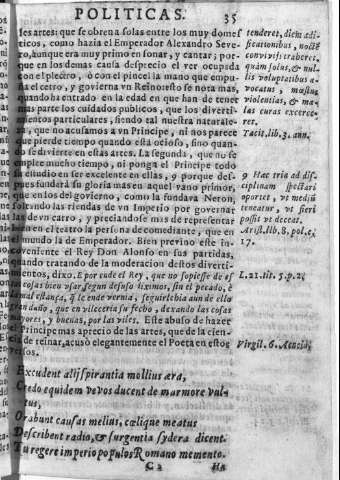 POLITICAS. 35
les artes: que se obren a solas entre los muy domes
ticos, como hazia el Emperador Alexandro Seve-
ro, aunque era muy primo en sonar, y cantar; por-
que en los demas causa desprecio el ver ocupada
con el plectro, ò con el pincel la mano que empu-
ña el cetro, y governa vn Reino: esto se nota mas,
quando ha entrado en la edad en que han de tener
mas parte los cuidados publicos, que los diverti-
mientos particulares, siendo tal nuestra naturale-
za, que no acusamos a vn Principe, ni nos parece
que pierde tiempo quando està ocioso, sino quan-
do se divierte en estas artes. La segunda, que no se
emplee mucho tiempo, ni ponga el Principe todo
el estudio en ser excelente en ellas, 9 porque des-
pues fundarà su gloria mas en aquel vano primor,
que en los del govierno, como la fundava Neron,
soltando las riendas de vn Imperio por governar
las de vn carro, y preciandose mas de representar
bien en el teatro la persona de comediante, que en
el mundo la de Emperador. Bien previno este in-
coveniente el Rey Don Alonso en sus partidas,
quando tratando de la moderacion destos diverti-
mientos, dixo. E por ende el Rey, que no sopiesse de es
tas cosas bien vsar segun desuso diximos, sin el pecado, è
mal estança, q̃ le ende vernia, seguirlehia aun de ello
gran daño, que envileceria su fecho, dexando las cosas
mayores, y buenas, por las viles. Este abuso de hazer
el Principe mas aprecio de las artes, que de la cien-
cia de reinar, acusò elegantemente el Poeta en estos
versos.
Excudent alij spirantia mollius æra,
Credo equidem vivos ducent de marmore vul-
tus,
Orabunt causas melius, cœlique meatus
Describent radio, & surgentia sydera dicent.
Tu regere imperio populos Romano memento.
C 2
tenderet, diem ædi-
ficationibus, noctē
convivijs traheret.
quàm solus, & nul-
lis voluptatibus a-
vocatus, mæstam
violentias, & ma-
las curas excerce-
ret.
Tacit. lib. 3. ann.
9 Hæc tria ad dis-
ciplinam spectari
oportet, vt mediũ
teneatur, vt fieri
possit vt deceat.
Arist. lib. 8. pol. c.
17.
L. 21. tit. 5. p. 2.
Virgil. 6. Aeneid.